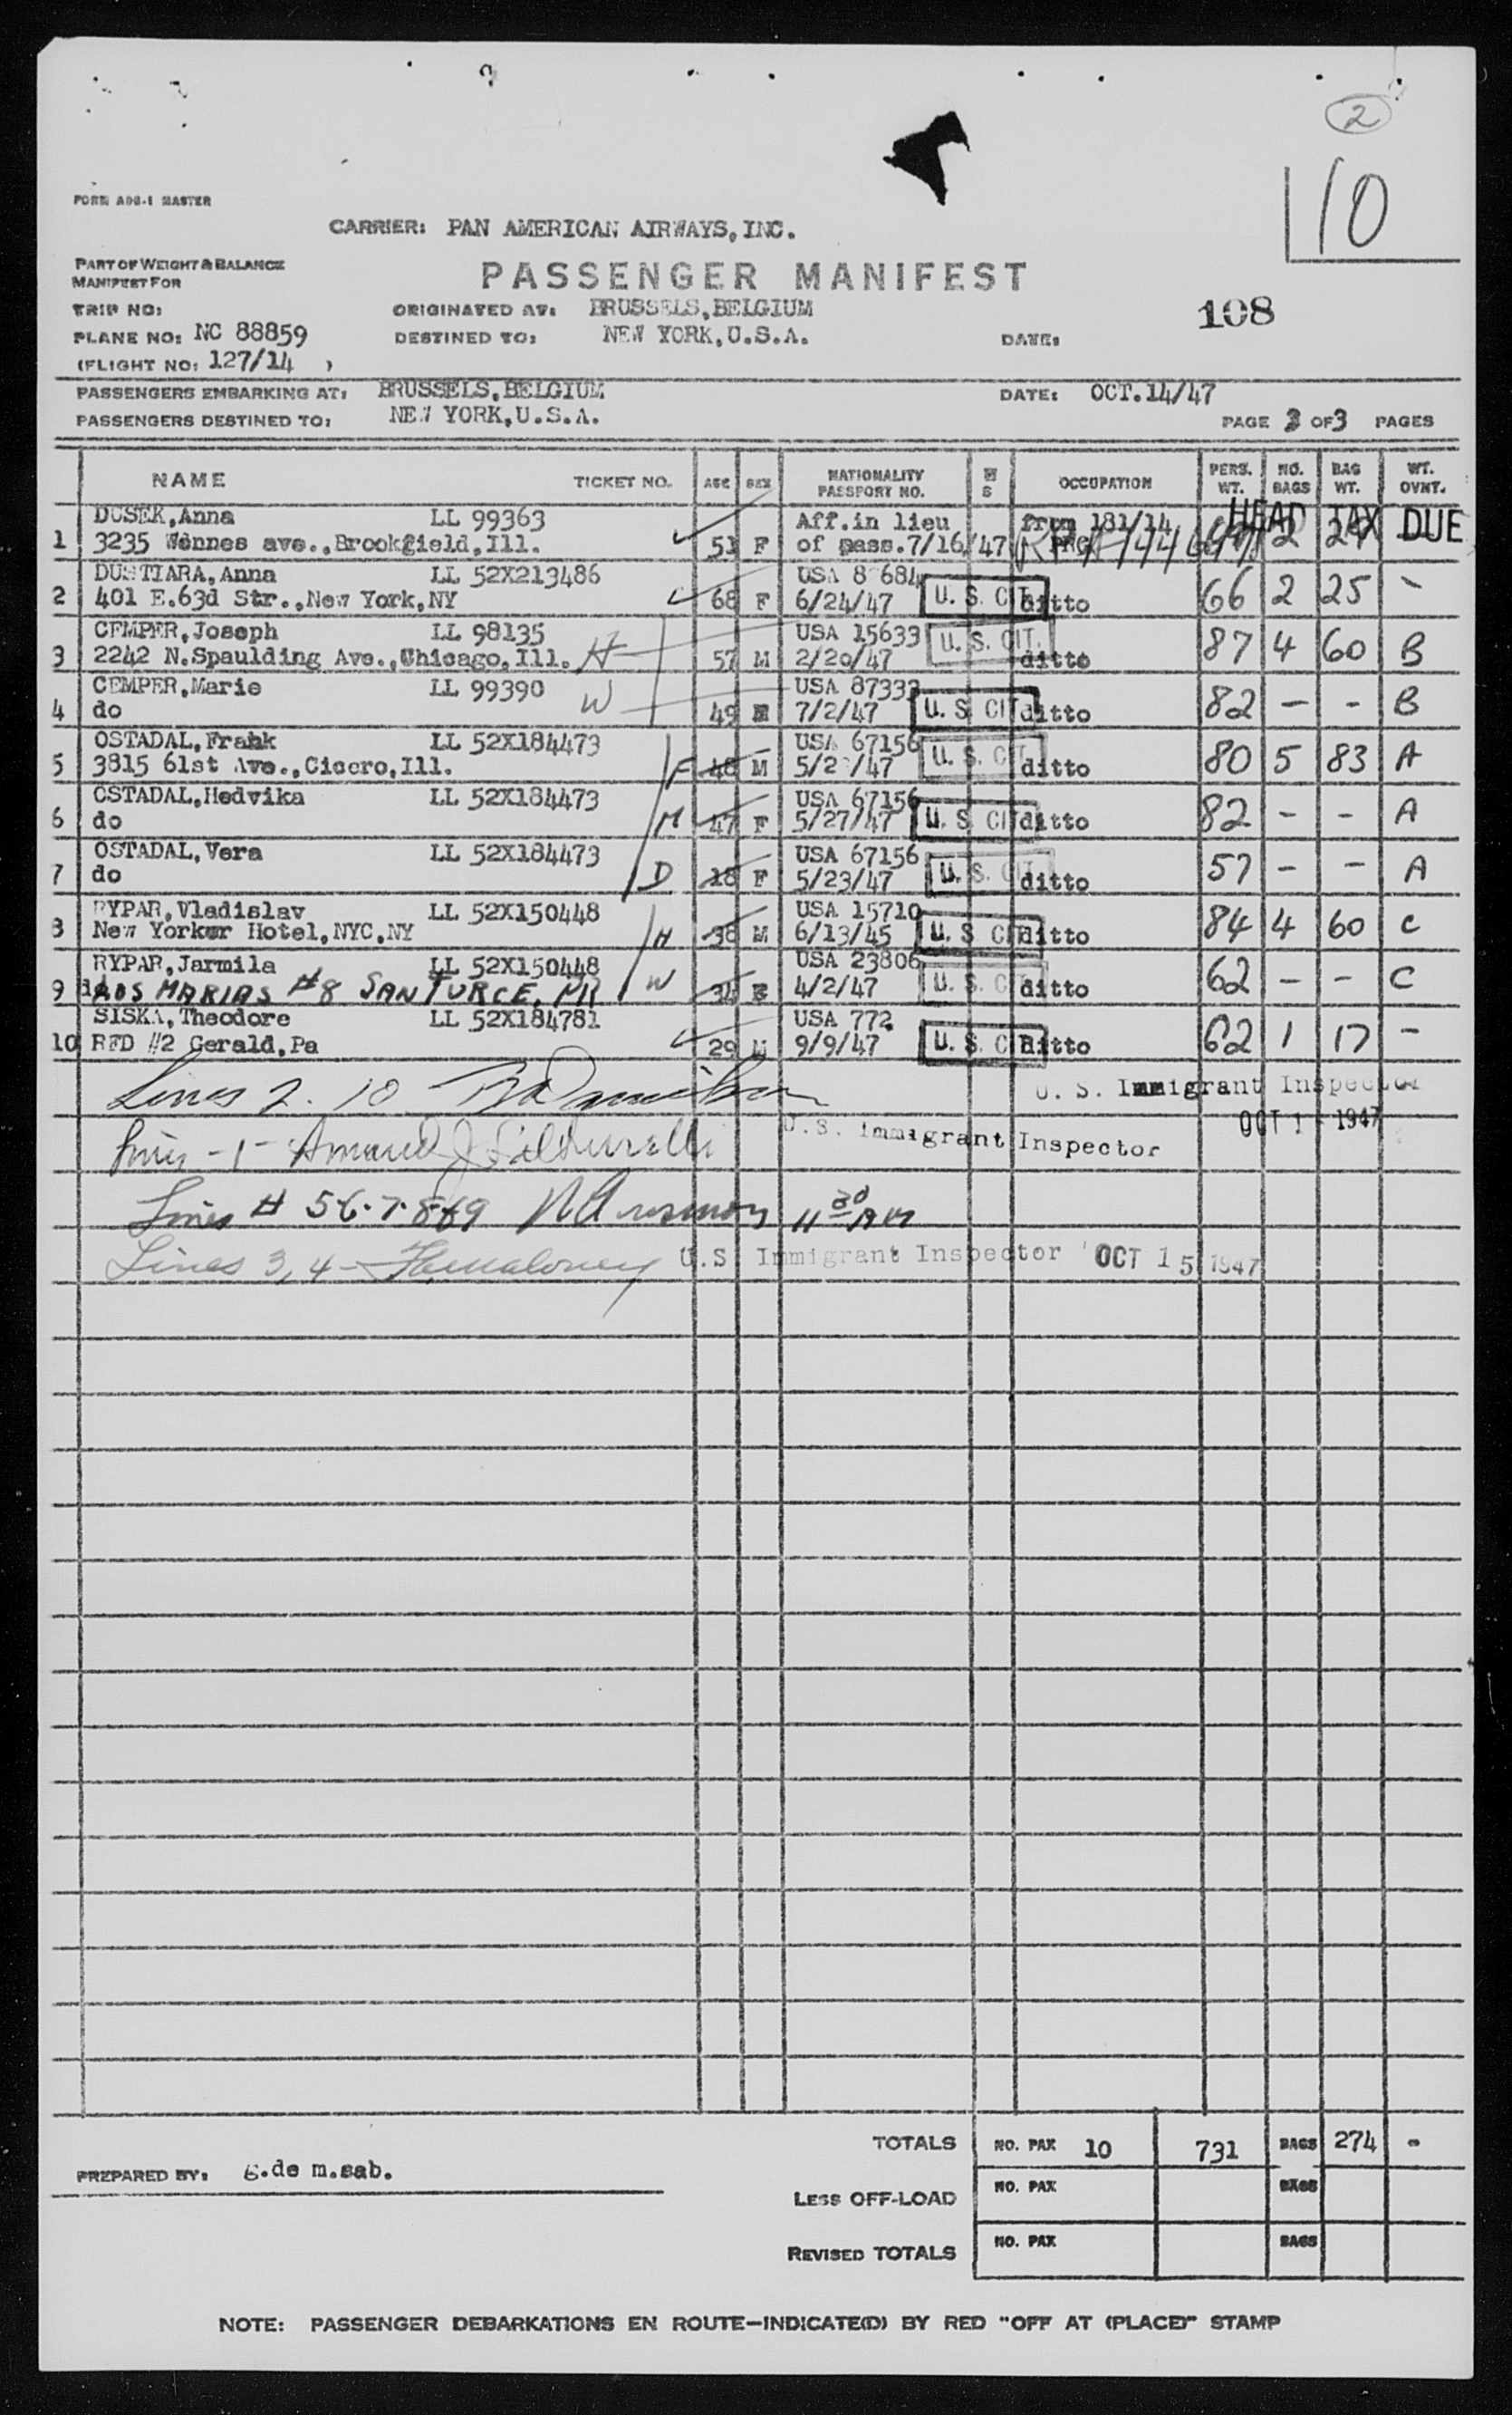 2
10
FORM ADS-1 MASTER
CARRIER: PAN AMERICAN AIRWAYS, INC.
PART OF WEIGHT & BALANCE
MANIFEST FOR
PASSENGER MANIFEST
TRIP NO:
ORIGINATED AT: BRUSSELS, BELGIUM
108
PLANE NO: NC 88859
DESTINED TO: NEW YORK, U.S.A.
DATE:
(FLIGHT NO: 127/14 )
PASSENGERS EMBARKING AT: BRUSSELS, BELGIUM
DATE: OCT.14/47
PASSENGERS DESTINED TO: NEW YORK, U.S.A.
PAGE 3 OF 3 PAGES
NAME TICKET NO. AGE SEX NATIONALITY PASSPORT NO. M S OCCUPATION PERS. WT. NO. BAGS BAG WT. WT. OVNT.
HEAD TAX DUE
DUSEK, Anna LL 99363 Aff. in lieu from 181/14
1 3235 Wennes ave., Brookfield, Ill. 51 F of pass. 7/16/47 2
DUSTIARA, Anna LL 52X213486 USA
2 401 E.63d Str., New York, NY 68 F 6/24/47 U. S. CIT. ditto 66 2 25 -
CEMPER, Joseph LL 98135 USA 15633
3 2242 N.Spaulding Ave., Chicago, Ill. H 57 M 2/20/47 U. S. CIT. ditto 87 4 60 B
CEMPER, Marie LL 99390 USA 87332
4 do W 49 7/2/47 U. S. CIT. ditto 82 - - B
OSTADAL, Frank LL 52X184473 USA 67156
5 3815 61st Ave., Cicero, Ill. F 48 M 5/2 /47 U. S. CIT. ditto 80 5 83 A
OSTADAL, Hedvika LL 52X184473 USA 67156
6 do M 47 F 5/27/47 U. S. CIT. ditto 82 - - A
OSTADAL, Vera LL 52X184473 USA 67156
7 do D 18 F 5/23/47 U. S. CIT. ditto 57 - - A
RYPAR, Vladislav LL 52X150448 USA 15710
8 New Yorker Hotel, NYC, NY H 38 M 6/13/45 U. S. CIT. ditto 84 4 60 C
RYPAR, Jarmila LL 52X150448 USA 23806
9 MARIAS #8 SANTURCE, PR W 34 4/2/47 U. S. CIT. ditto 62 - - C
SISKA, Theodore LL 52X184781 USA 772
10 RFD #2 Gerald, Pa 29 M 9/9/47 U. S. CIT. ditto 62 1 17 -
Lines 2. 10 U. S. Immigrant Inspector
U.S. Immigrant Inspector OCT 1 1947
Lines # 5 6. 7. 8 & 9 11 30 AM
Lines 3, 4 - U.S. Immigrant Inspector OCT 15 1947
TOTALS NO. PAX 10 731 BAGS 274 -
PREPARED BY: g.de m.sab.
LESS OFF-LOAD NO. PAX BAGS
REVISED TOTALS NO. PAX BAGS
NOTE: PASSENGER DEBARKATIONS EN ROUTE—INDICATE(D) BY RED "OFF AT (PLACE)" STAMP